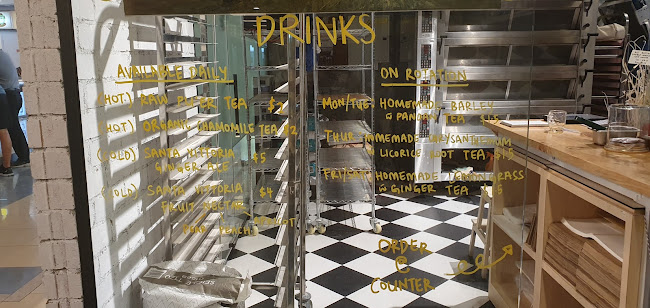 DRINKS
AVAILABLE DAILY
(HOT) RAW PU'ER TEA $2
(HOT) ORGANIC CHAMOMILE TEA $2
(COLD) SANTA VITTORIA $5
GINGER ALE
(COLD) SANTA VITTORIA $4
FRUIT NECTAR
PEACH
ON ROTATION
MON/TUE: HOMEMADE BARLEY
& PANDAN TEA $1.5
THUR: HOMEMADE CHRYSANTHEMUM
LICORICE ROOT TEA $1.5
FRI/SAT: HOMEMADE LEMONGRASS
& GINGER TEA $1.5
ORDER
@
COUNTER